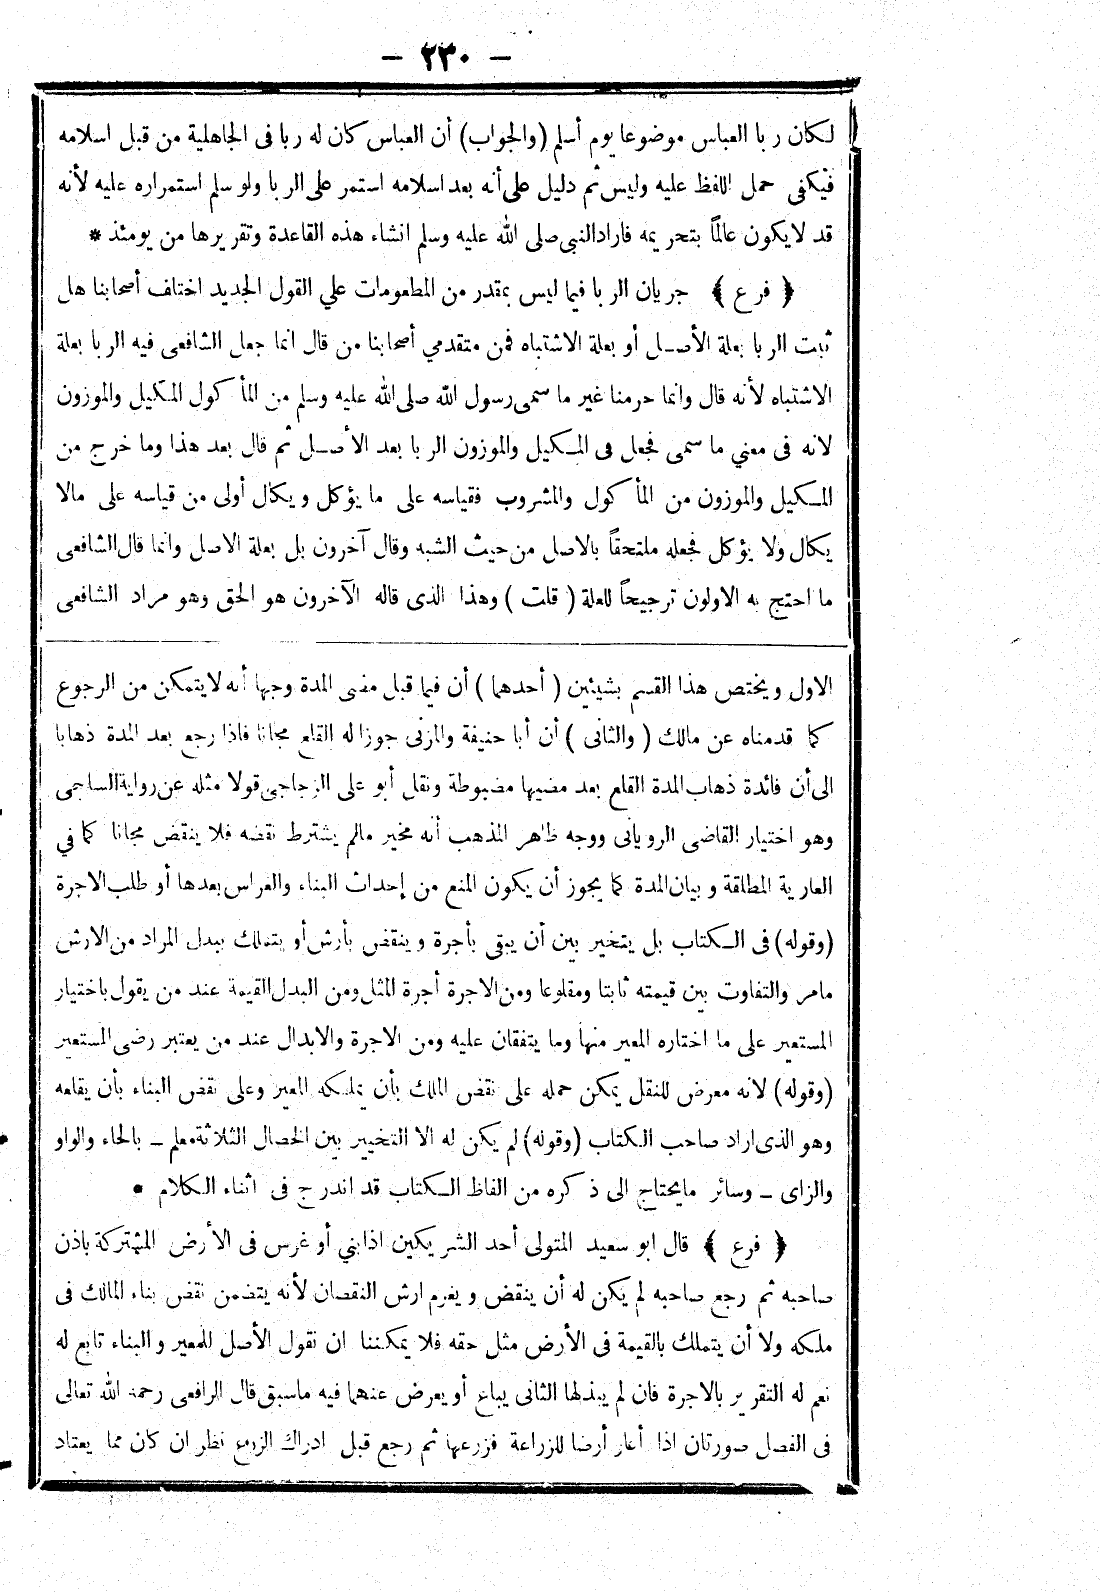 – ٢٣٠ –
لكان ربا العباس موضوعا يوم أسلم (والجواب) أن العباس كان له ربا فى الجاهلية من قبل اسلامه
فيكفى حمل اللفظ عليه وليس ثم دليل على أنه بعد اسلامه استمر على الربا ولو سلم استمراره عليه لأنه
قد لا يكون عالمًا بتحريمه فاراد النبى صلى الله عليه وسلم انشاء هذه القاعدة وتقريرها من يومئذ *
﴿ فرع ﴾ جريان الربا فيما ليس بمقدر من المطعومات علي القول الجديد اختلف أصحابنا هل
ثبت الربا بعلة الأصـل أو بعلة الاشتباه فمن متقدمي أصحابنا من قال انما جعل الشافعى فيه الربا بعلة
الاشتباه لأنه قال وانما حرمنا غير ما سمى رسول الله صلى الله عليه وسلم من المأكول المكيل والموزون
لانه فى معني ما سمى فجعل فى المـكيل والموزون الربا بعد الأصـل ثم قال بعد هذا وما خرج من
المـكيل والموزون من المأكول والمشروب فقياسه على ما يؤكل ويكال أولى من قياسه على مالا
يكال ولا يؤكل فجعله ملتحقاً بالاصل من حيث الشبه وقال آخرون بل بعلة الاصل وانما قال الشافعى
ما احتج به الاولون ترجيحاً للعلة ( قلت ) وهذا الذى قاله الآخرون هو الحق وهو مراد الشافعى
الاول ويختص هذا القسم بشيئين ( أحدهما ) أن فيما قبل مضى المدة وجها أنه لا يتمكن من الرجوع
كما قدمناه عن مالك ( والثانى ) أن أبا حنيفة والمزنى جوزا له القلع مجانا فاذا رجع بعد المدة ذهابا
الى أن فائدة ذهاب المدة القلع بعد مضيها مضبوطة ونقل أبو على الزجاجى قولا مثله عن رواية الساجى
وهو اختيار القاضى الرويانى ووجه ظاهر المذهب أنه مخير مالم يشترط نقضه فلا ينقض مجانا كما في
العارية المطلقة وبيان المدة كما يجوز أن يكون المنع من إحداث البناء والغراس بعدها أو طلب الاجرة
(وقوله) فى الـكتاب بل يتخير بين أن يبقى بأجرة وينقض بأرش أو يتملك ببدل المراد من الارش
مامر والتفاوت بين قيمته ثابتا ومقلوعا ومن الاجرة أجرة المثل ومن البدل القيمة عند من يقول باختيار
المستعير على ما اختاره المعير منها وما يتفقان عليه ومن الاجرة والابدال عند من يعتبر رضى المستعير
(وقوله) لانه معرض للنقل يمكن حمله على نقض الملك بأن يملكه المعير وعلى نقض البناء بأن يقلعه
وهو الذى اراد صاحب الكتاب (وقوله) لم يكن له الا التخيير بين الخصال الثلاثة معلم – بالحاء والواو
والزاى – وسائر مايحتاج الى ذكره من الفاظ الـكتاب قد اندرج فى اثناء الـكلام •
﴿ فرع ﴾ قال ابو سعيد المتولى أحد الشريكين اذا بني أو غرس فى الأرض المشتركة باذن
صاحبه ثم رجع صاحبه لم يكن له أن ينقض ويغرم ارش النقصان لأنه يتضمن نقض بناء المالك فى
ملكه ولا أن يتملك بالقيمة فى الأرض مثل حقه فلا يمكننا ان نقول الأصل للمعير والبناء تابع له
نعم له التقرير بالاجرة فان لم يبذلها الثانى يباع أو يعرض عنهما فيه ماسبق قال الرافعى رحمه الله تعالى
فى الفصل صورتان اذا أعار أرضا للزراعة فزرعها ثم رجع قبل ادراك الزرع نظر ان كان مما يعتاد